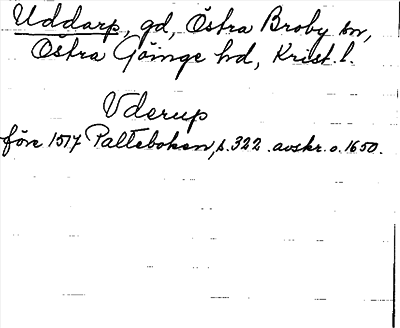 Uddarp, gd, Östra Broby sn,
Östra Göinge hd, Krist. l.
Vderup
före 1517 Palteboken, s. 322. avskr. o. 1650.